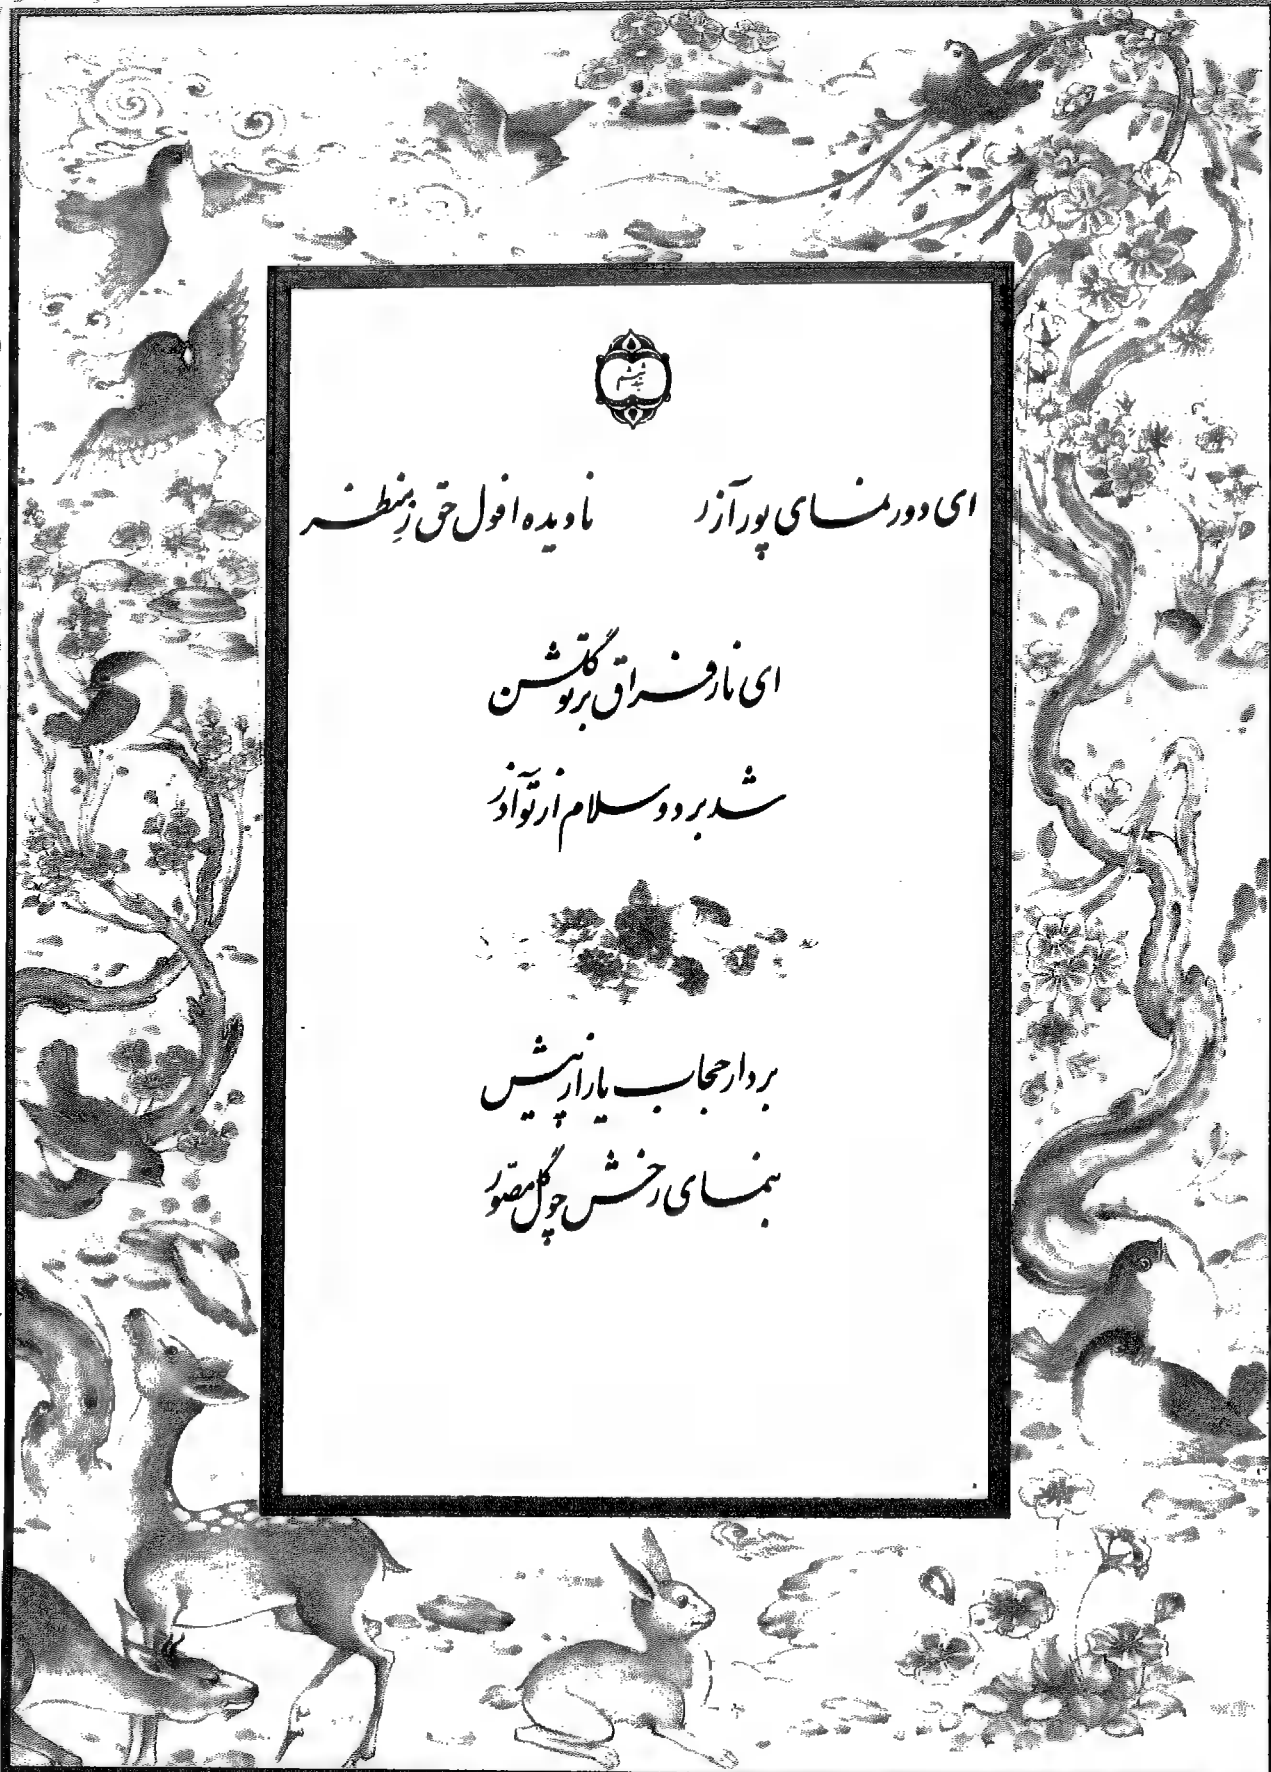 بند ششم
ای دورنمای پور آزر نادیده افول حق ز منظر
ای نار فراق بر تو گلشن
شد برد و سلام از تو آذر
بردار حجاب یار از پیش
بنمای رخش چو گل مصوّر